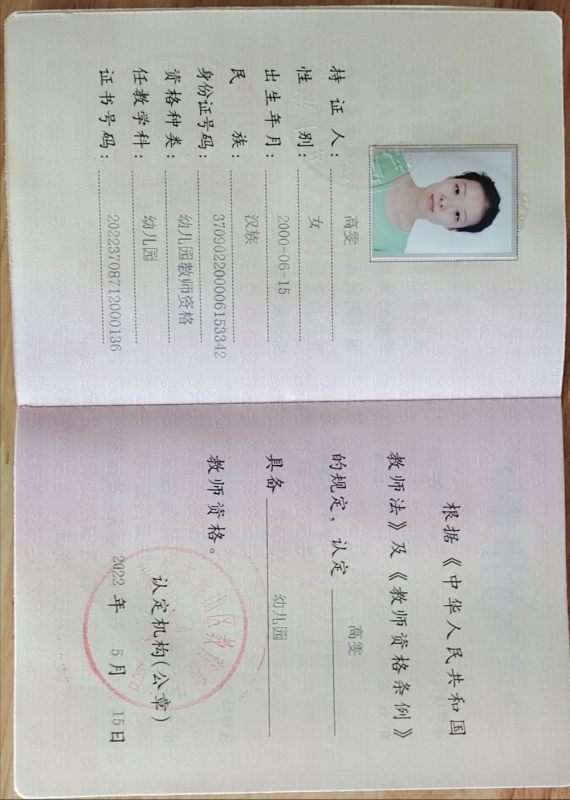 持证人：高雯
性别：女
出生年月：2000-06-15
民族：汉族
身份证号码：370902200006153342
资格种类：幼儿园教师资格
任教学科：幼儿园
证书号码：20223708712000136
根据《中华人民共和国
教师法》及《教师资格条例》
的规定，认定 高雯
具备 幼儿园
教师资格。
认定机构(公章)
2022年 5月 15日